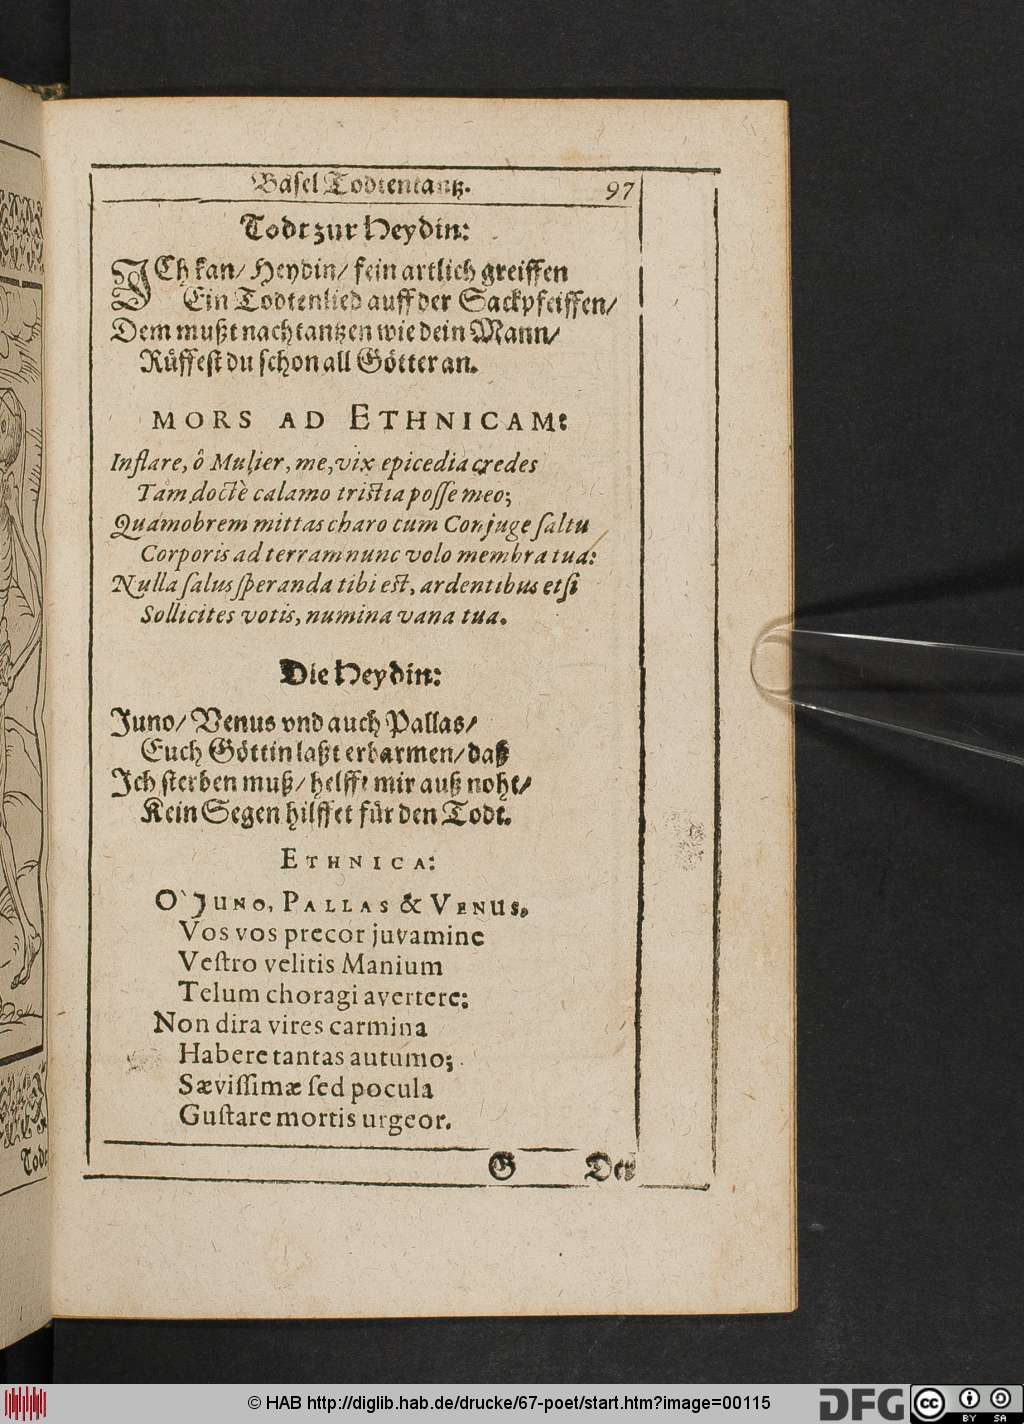 Basel Todtentantz. 97
Todt zur Heydin:
ICh kan/ Heydin/ fein artlich greiffen
Ein Todtenlied auff der Sackpfeiffen/
Dem mußt nach tantzen wie dein Mann/
Růffest du schon all Götter an.
MORS AD ETHNICAM:
Inflare, ô Mulier, me, vix epicedia credes
Tam doctè calamo tristia posse meo;
Quamobrem mittas charo cum Conjuge saltu
Corporis ad terram nunc volo membra tua:
Nulla salus speranda tibi est, ardentibus etsi
Sollicites votis, numina vana tua.
Die Heydin:
Juno/ Venus vnd auch Pallas/
Euch Göttin laßt erbarmen/ daß
Ich sterben muß/ helfft mir auß noht/
Kein Segen hilffet für den Todt.
ETHNICA:
O` JUNO, PALLAS & VENUS,
Vos vos precor juvamine
Vestro velitis Manium
Telum choragi avertere:
Non dira vires carmina
Habere tantas autumo;
Sævissimæ sed pocula
Gustare mortis urgeor.
G Der
Todt
© HAB http://diglib.hab.de/drucke/67-poet/start.htm?image=00115
DFG
cc BY SA